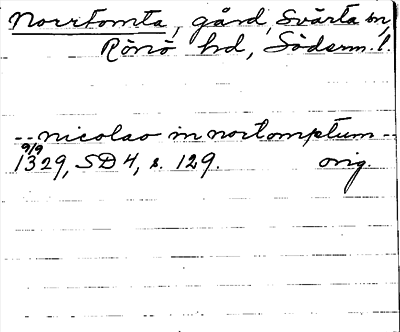 Norrtomta, gård, Svärta sn,
Rönö hd, Söderm. l.
-- nicolao in nortomptum --
9/9
1329, SD 4, s. 129. orig.